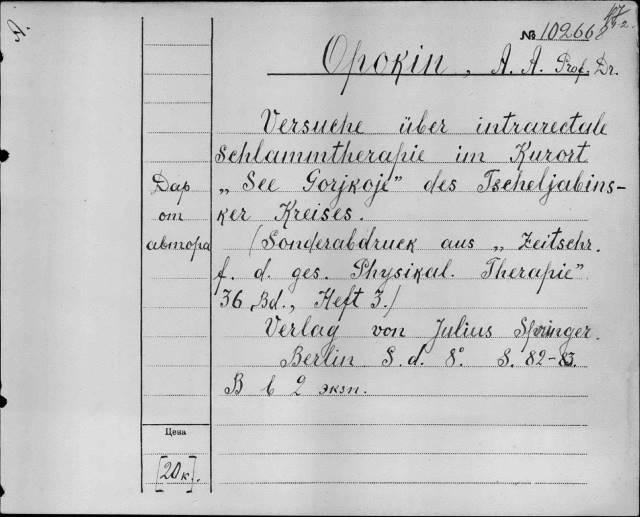 Я.
№ 102668
Opokin, A. A. Prof. Dr.
Versuche über intrarectale
Schlammtherapie im Kurort
„See Gorjkoje" des Tscheljabins-
ker Kreises.
(Sonderabdruck aus „Zeitschr.
f. d. ges. Physikal. Therapie"
36 Bd., Heft 3.)
Verlag von Julius Springer.
Berlin S. d. 8°. S. 82-83.
В 6 2 экзп.
Дар
от
автора
Цена
[20к].